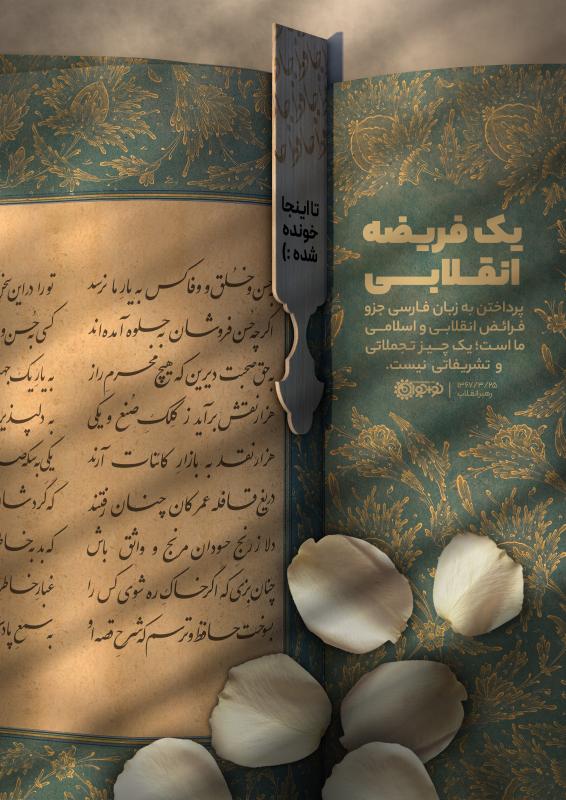 یک فریضه
انقلابی
پرداختن به زبان فارسی جزو
فرائض انقلابی و اسلامی
ما است؛ یک چیز تجملاتی
و تشریفاتی نیست.
۱۳۶۷/۳/۲۵
رهبر انقلاب
تا اینجا
خونده
شده :)
حسن و خلق و وفا کس به یار ما نرسد تو را در این
اگرچه حسن فروشان به جلوه آمده‌اند کسی به حسن و
حق صحبت دیرین که هیچ محرم راز به یار یک
هزار نقش برآید ز کلک صنع و یکی به
هزار نقد به بازار کائنات آرند یکی به سکه
دریغ قافله عمر کان چنان رفتند که گردشان
دلا ز رنج حسودان مرنج و واثق باش که بد به
چنان بزی که اگر خاک ره شوی کس را غبار
بسوخت حافظ و ترسم که شرح قصه او به سمع